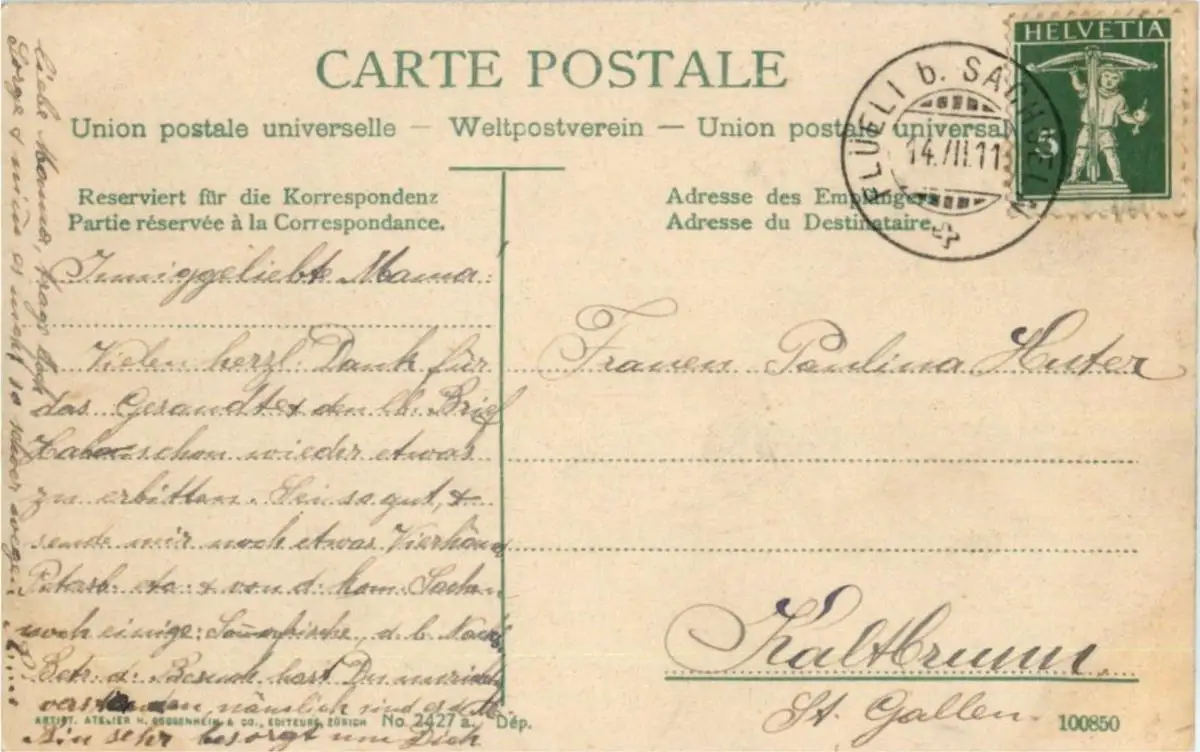 HELVETIA
5
FLÜELI b. SACHSELN
14.VII.11
CARTE POSTALE
Union postale universelle — Weltpostverein — Union postale universale
Reserviert für die Korrespondenz
Partie réservée à la Correspondance.
Adresse des Empfängers
Adresse du Destinataire.
Inniggeliebte Mama:
Vielen herzl. Dank für
das Gesandte & den lb. Brief
Habe schon wieder etwas
zu erbitten. Sei so gut, &
sende mir noch etwas
etc. & von d. kom. Sachen
noch einige: d. lb.
Betr. d. Besuch hast Du
verstanden, nämlich sind es
Bin sehr besorgt um Dich
Liebe Mama, trage doch
Sorge & nicht so schwer
Frauen Paulina Huter
Kaltbrunn
St. Gallen.
ARTIST. ATELIER H. GUGGENHEIM & CO., EDITEURS, ZÜRICH No. 2427 a. Dép.
100850